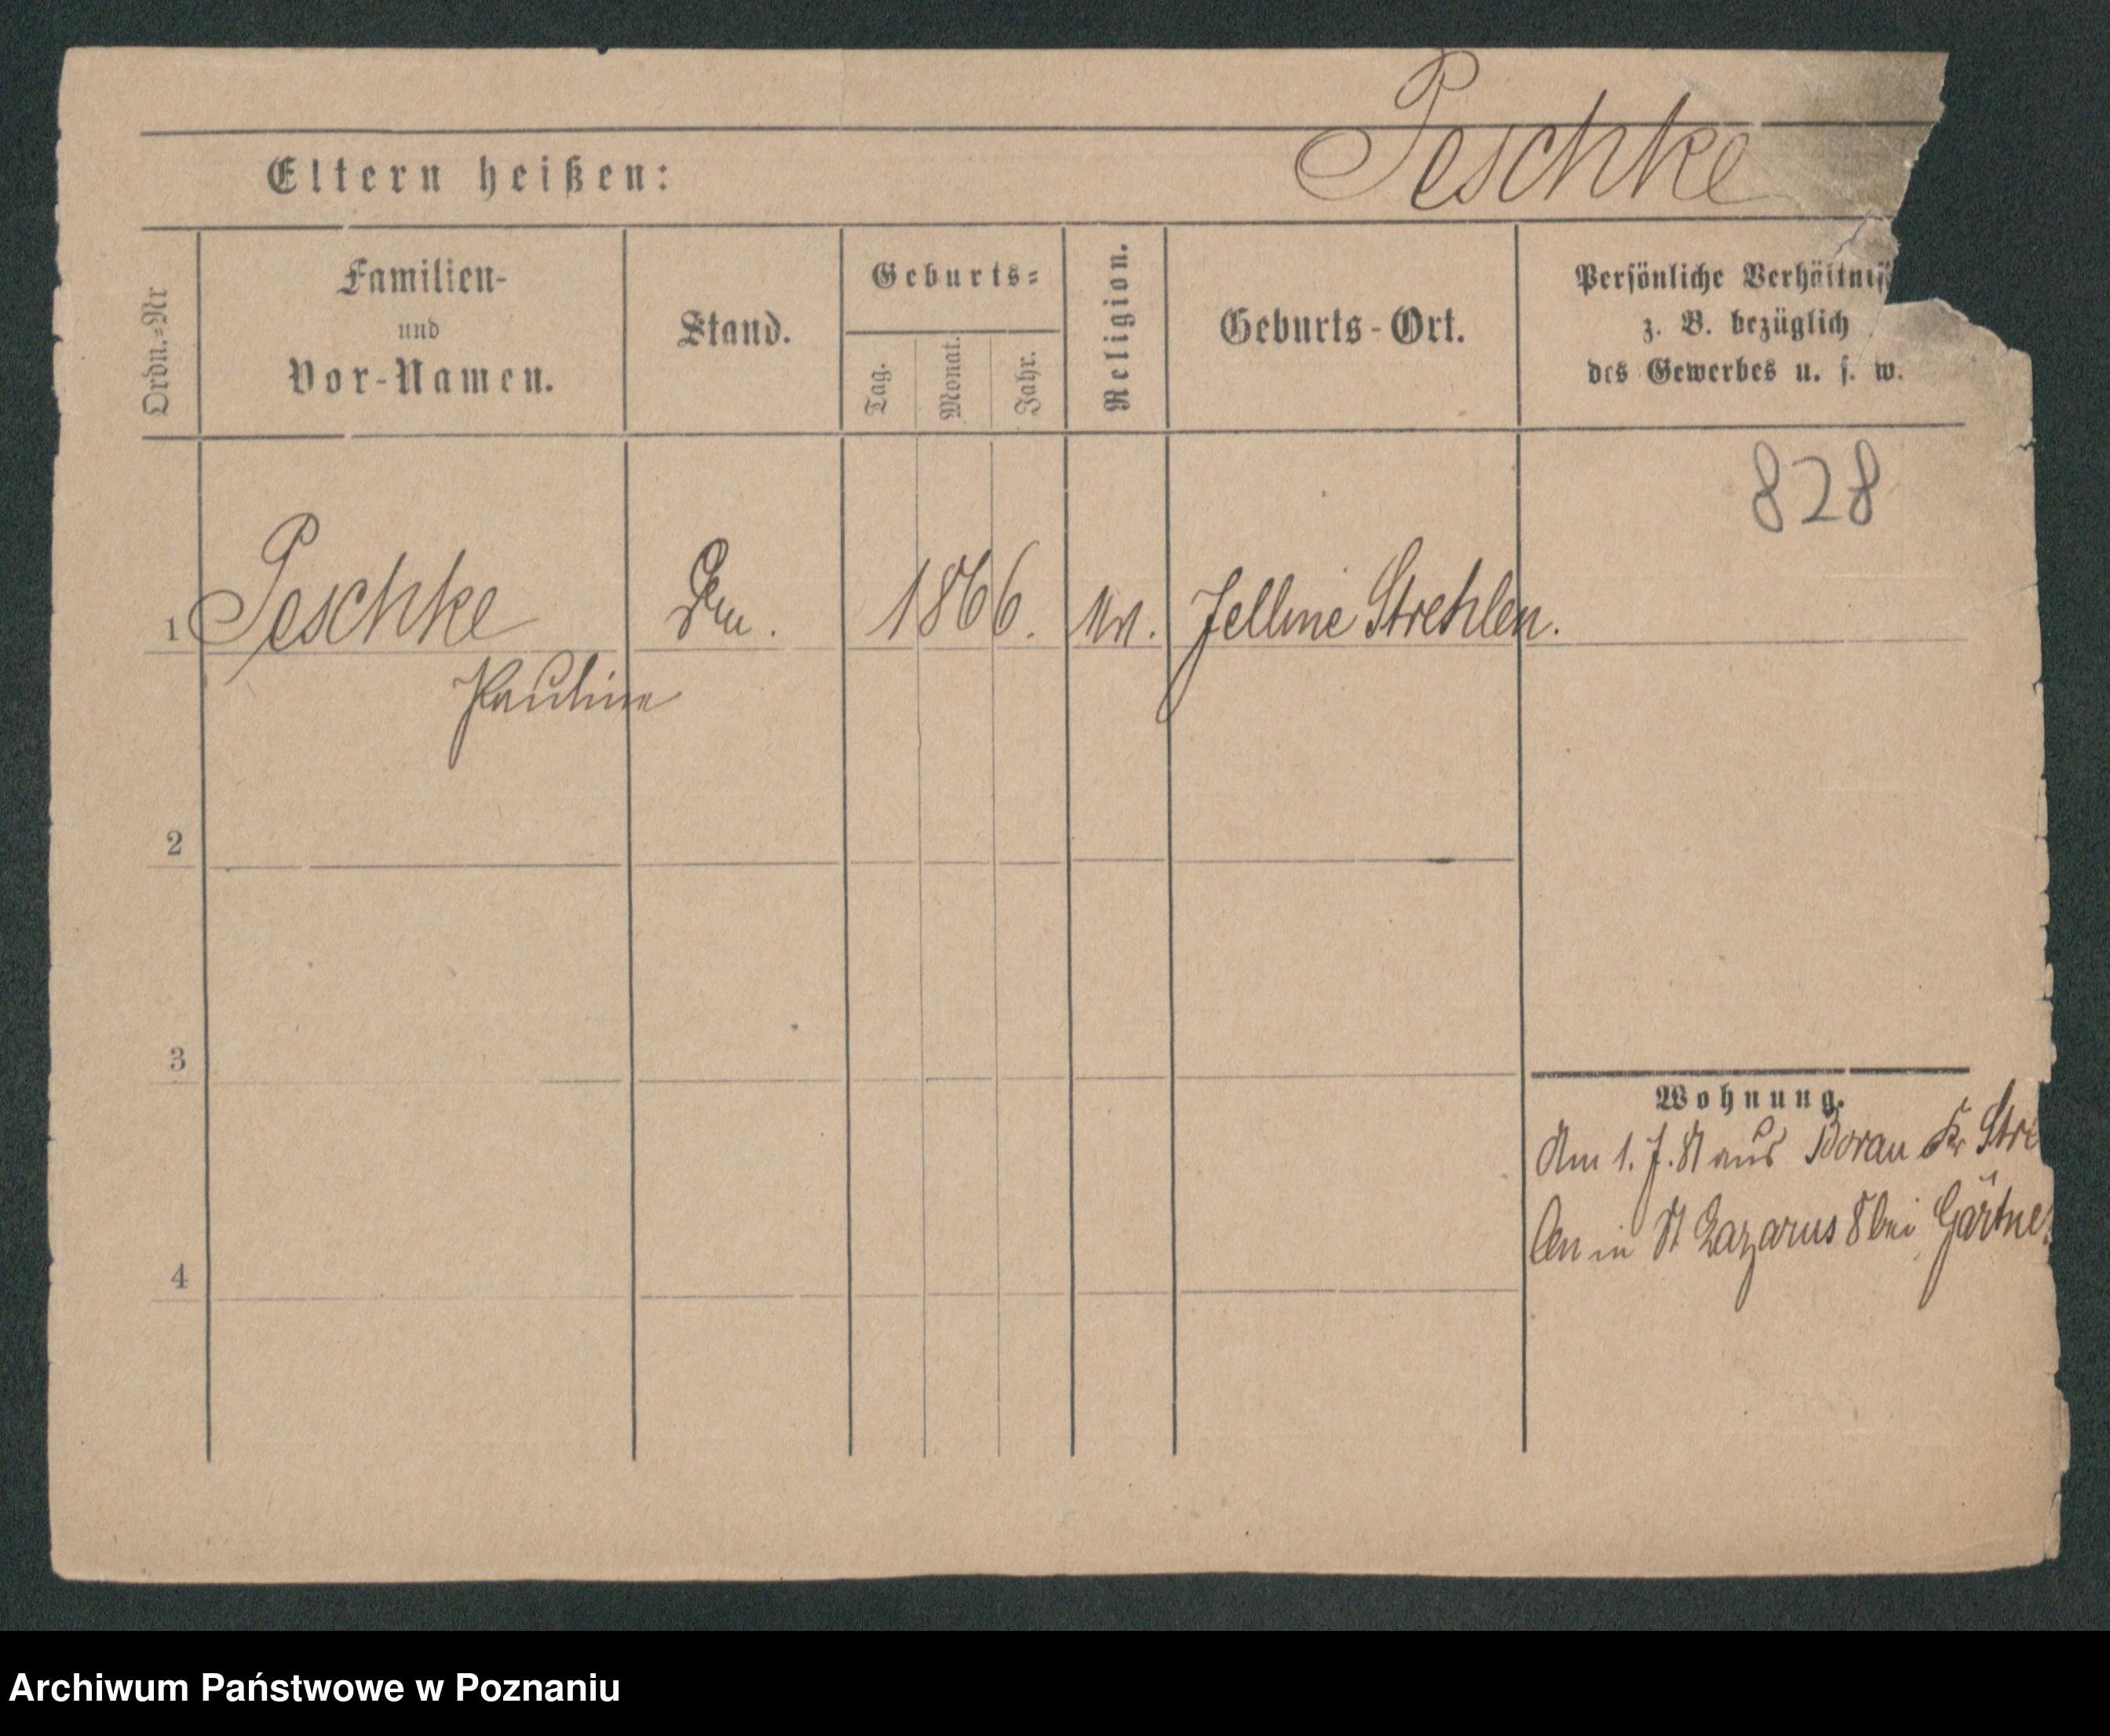 Peschke
Eltern heißen:
Ordn.=Nr
Familien-
und
Vor-Namen.
Stand.
Geburts=
Tag.
Monat.
Jahr.
Religion.
Geburts-Ort.
Persönliche Verhältniß
z. B. bezüglich
des Gewerbes u. s. w.
828
1 Peschke 1866. Strehlen.
Pauline
2
3
Wohnung.
Am 1. 7. aus Borau Kr Stre
len in St Lazarus 8 bei Gärtne
4
Archiwum Państwowe w Poznaniu